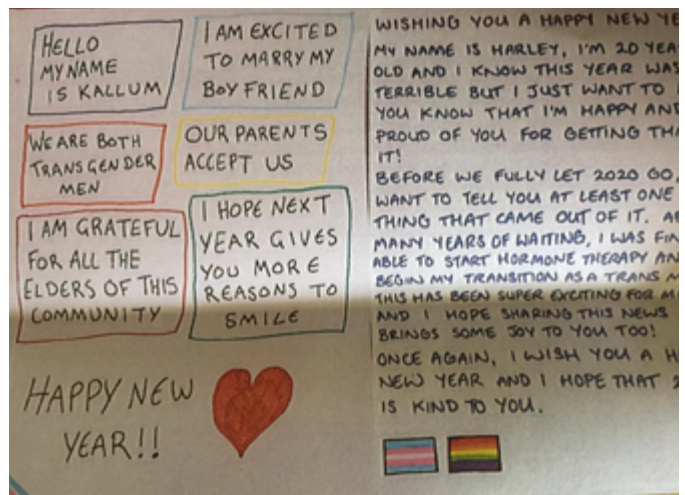 HELLO
MY NAME
IS KALLUM
I AM EXCITED
TO MARRY MY
BOY FRIEND
WE ARE BOTH
TRANSGENDER
MEN
OUR PARENTS
ACCEPT US
I AM GRATEFUL
FOR ALL THE
ELDERS OF THIS
COMMUNITY
I HOPE NEXT
YEAR GIVES
YOU MORE
REASONS TO
SMILE
HAPPY NEW
YEAR!!
WISHING YOU A HAPPY NEW
MY NAME IS HARLEY, I'M 20
OLD AND I KNOW THIS YEAR WAS
TERRIBLE BUT I JUST WANT TO
YOU KNOW THAT I'M HAPPY AND
PROUD OF YOU FOR GETTING
IT!
BEFORE WE FULLY LET 2020 GO,
WANT TO TELL YOU AT LEAST ONE
THING THAT CAME OUT OF IT.
MANY YEARS OF WAITING, I WAS
ABLE TO START HORMONE THERAPY
BEGIN MY TRANSITION AS A TRANS
THIS HAS BEEN SUPER EXCITING FOR
AND I HOPE SHARING THIS NEWS
BRINGS SOME JOY TO YOU TOO!
ONCE AGAIN, I WISH YOU A
NEW YEAR AND I HOPE THAT
IS KIND TO YOU.